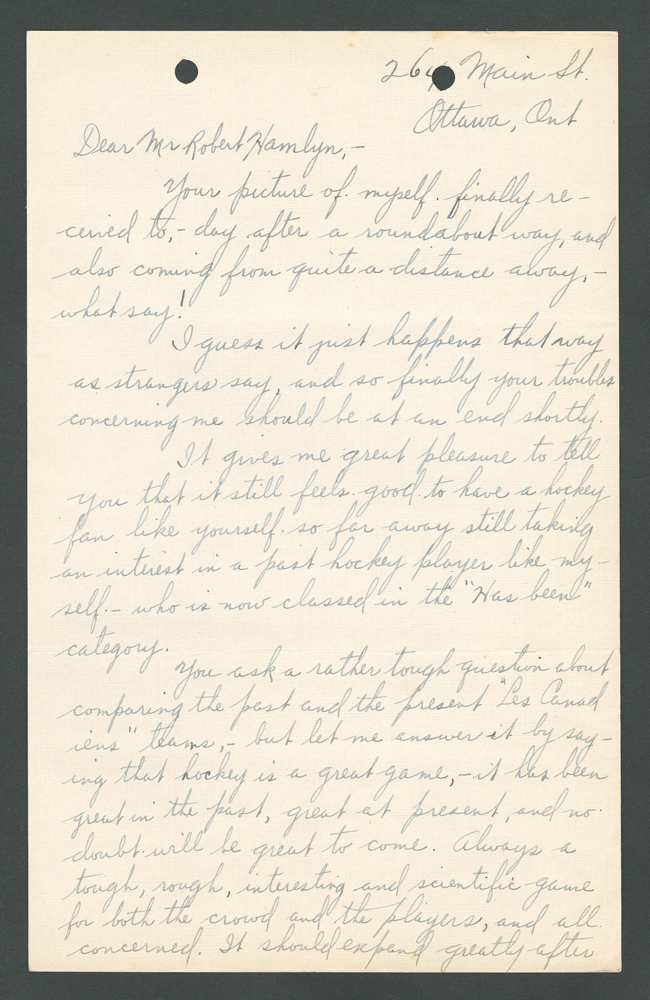 264 Main St.
Ottawa, Ont
Dear Mr Robert Hamlyn,-
Your picture of. myself. finally re-
ceived to,- day after a roundabout way, and
also coming from quite a distance away,-
what say!
I guess it just happens that way
as strangers say, and so finally your troubles
concerning me should be at an end shortly.
It gives me great pleasure to tell
you that it still feels. good. to have a hockey
fan like yourself. so far away still taking
an interest in a past hockey player like my-
self.- who is now classed in the "Has been"
category.
You ask a rather tough question about
comparing the past and the present "Les Canad
iens" teams,- but let me answer it by say-
ing that hockey is a great game,- it has been
great in the past, great at present, and no.
doubt. will be great to come. Always a
tough, rough, interesting and scientific game
for both the crowd and the players, and all.
concerned. It should expand greatly after